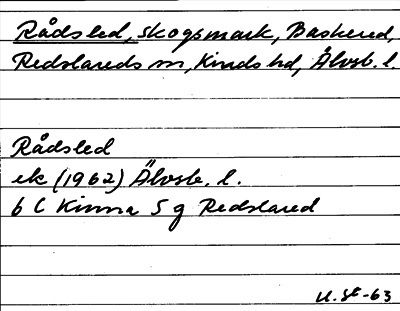 Rådsled, skogsmark, Baskered,
Redslareds sn, Kinds hd, Älvsb. l.
Rådsled
ek (1962) Älvsb. l.
6 C Kinna 5 g Redslared
U. St-63